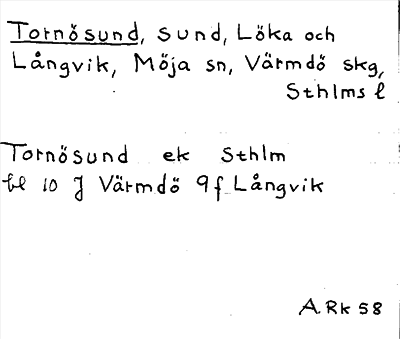 Tornösund, sund, Löka och
Långvik, Möja sn, Värmdö skg,
Sthlms l
Tornösund ek Sthlm
bl 10 J Värmdö 9f Långvik
A. Rk 58